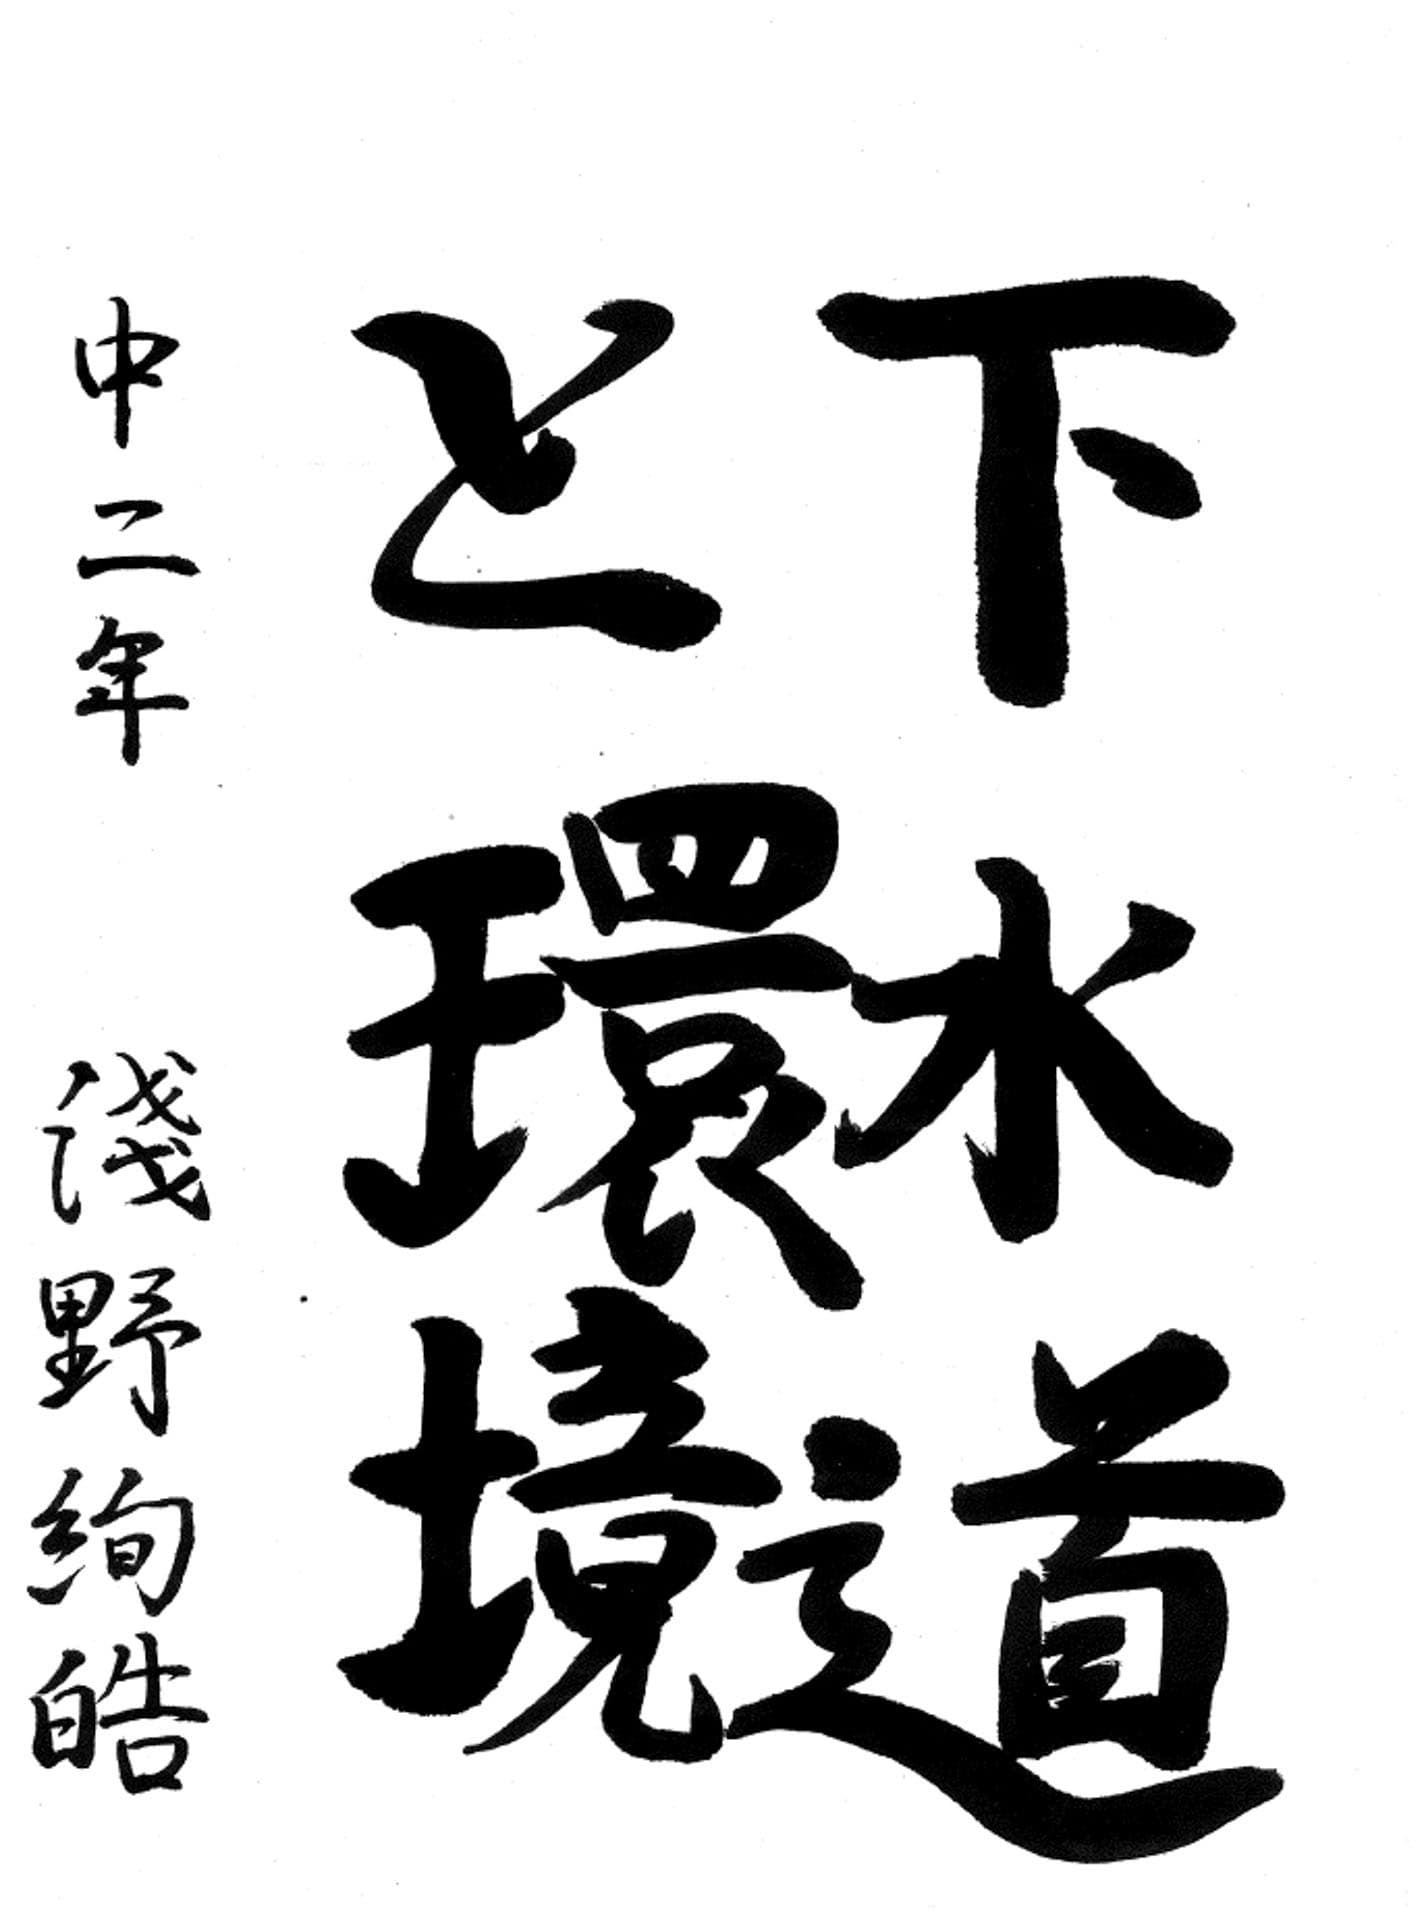 下水道
と環境
中二年 淺野絢皓